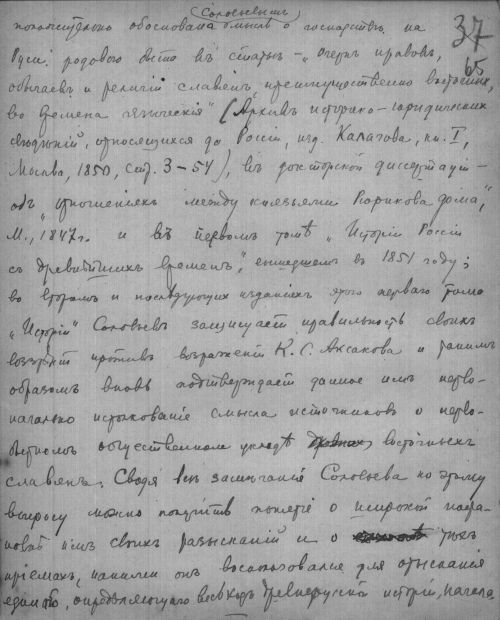 Соловьевымъ
положительно обоснована мысль о господствѣ на
37
65
Руси родового быта въ статьѣ – „Очеркъ нравовъ,
обычаевъ и религіи славянъ, преимущественно восточныхъ,
во времена языческія" (Архивъ историко-юридическихъ
свѣдѣній, относящихся до Россіи, изд. Калачова, кн. I,
Москва, 1850, стр. 3–54), въ докторской диссертаціи –
объ „отношеніяхъ между князьями Рюрикова дома",
М., 1847 г. и въ первомъ томѣ „Исторіи Россіи
съ древнѣйшихъ временъ", вышедшемъ въ 1851 году;
во второмъ и послѣдующихъ изданіяхъ этого перваго тома
„Исторіи" Соловьевъ защищаетъ правильность своихъ
воззрѣній противъ возраженій К. С. Аксакова и такимъ
образомъ вновь подтверждаетъ данное имъ перво-
начально истолкованіе смысла источниковъ о перво-
бытномъ общественномъ укладѣ восточныхъ
славянъ. Сводя всѣ замѣчанія Соловьева по этому
вопросу можно получить понятіе о широкой поста-
новкѣ имъ своихъ разысканій и о тѣхъ
пріемахъ, какими онъ воспользовался для отысканія
единаго, опредѣляющаго весь ходъ древнерусской исторіи, начала.